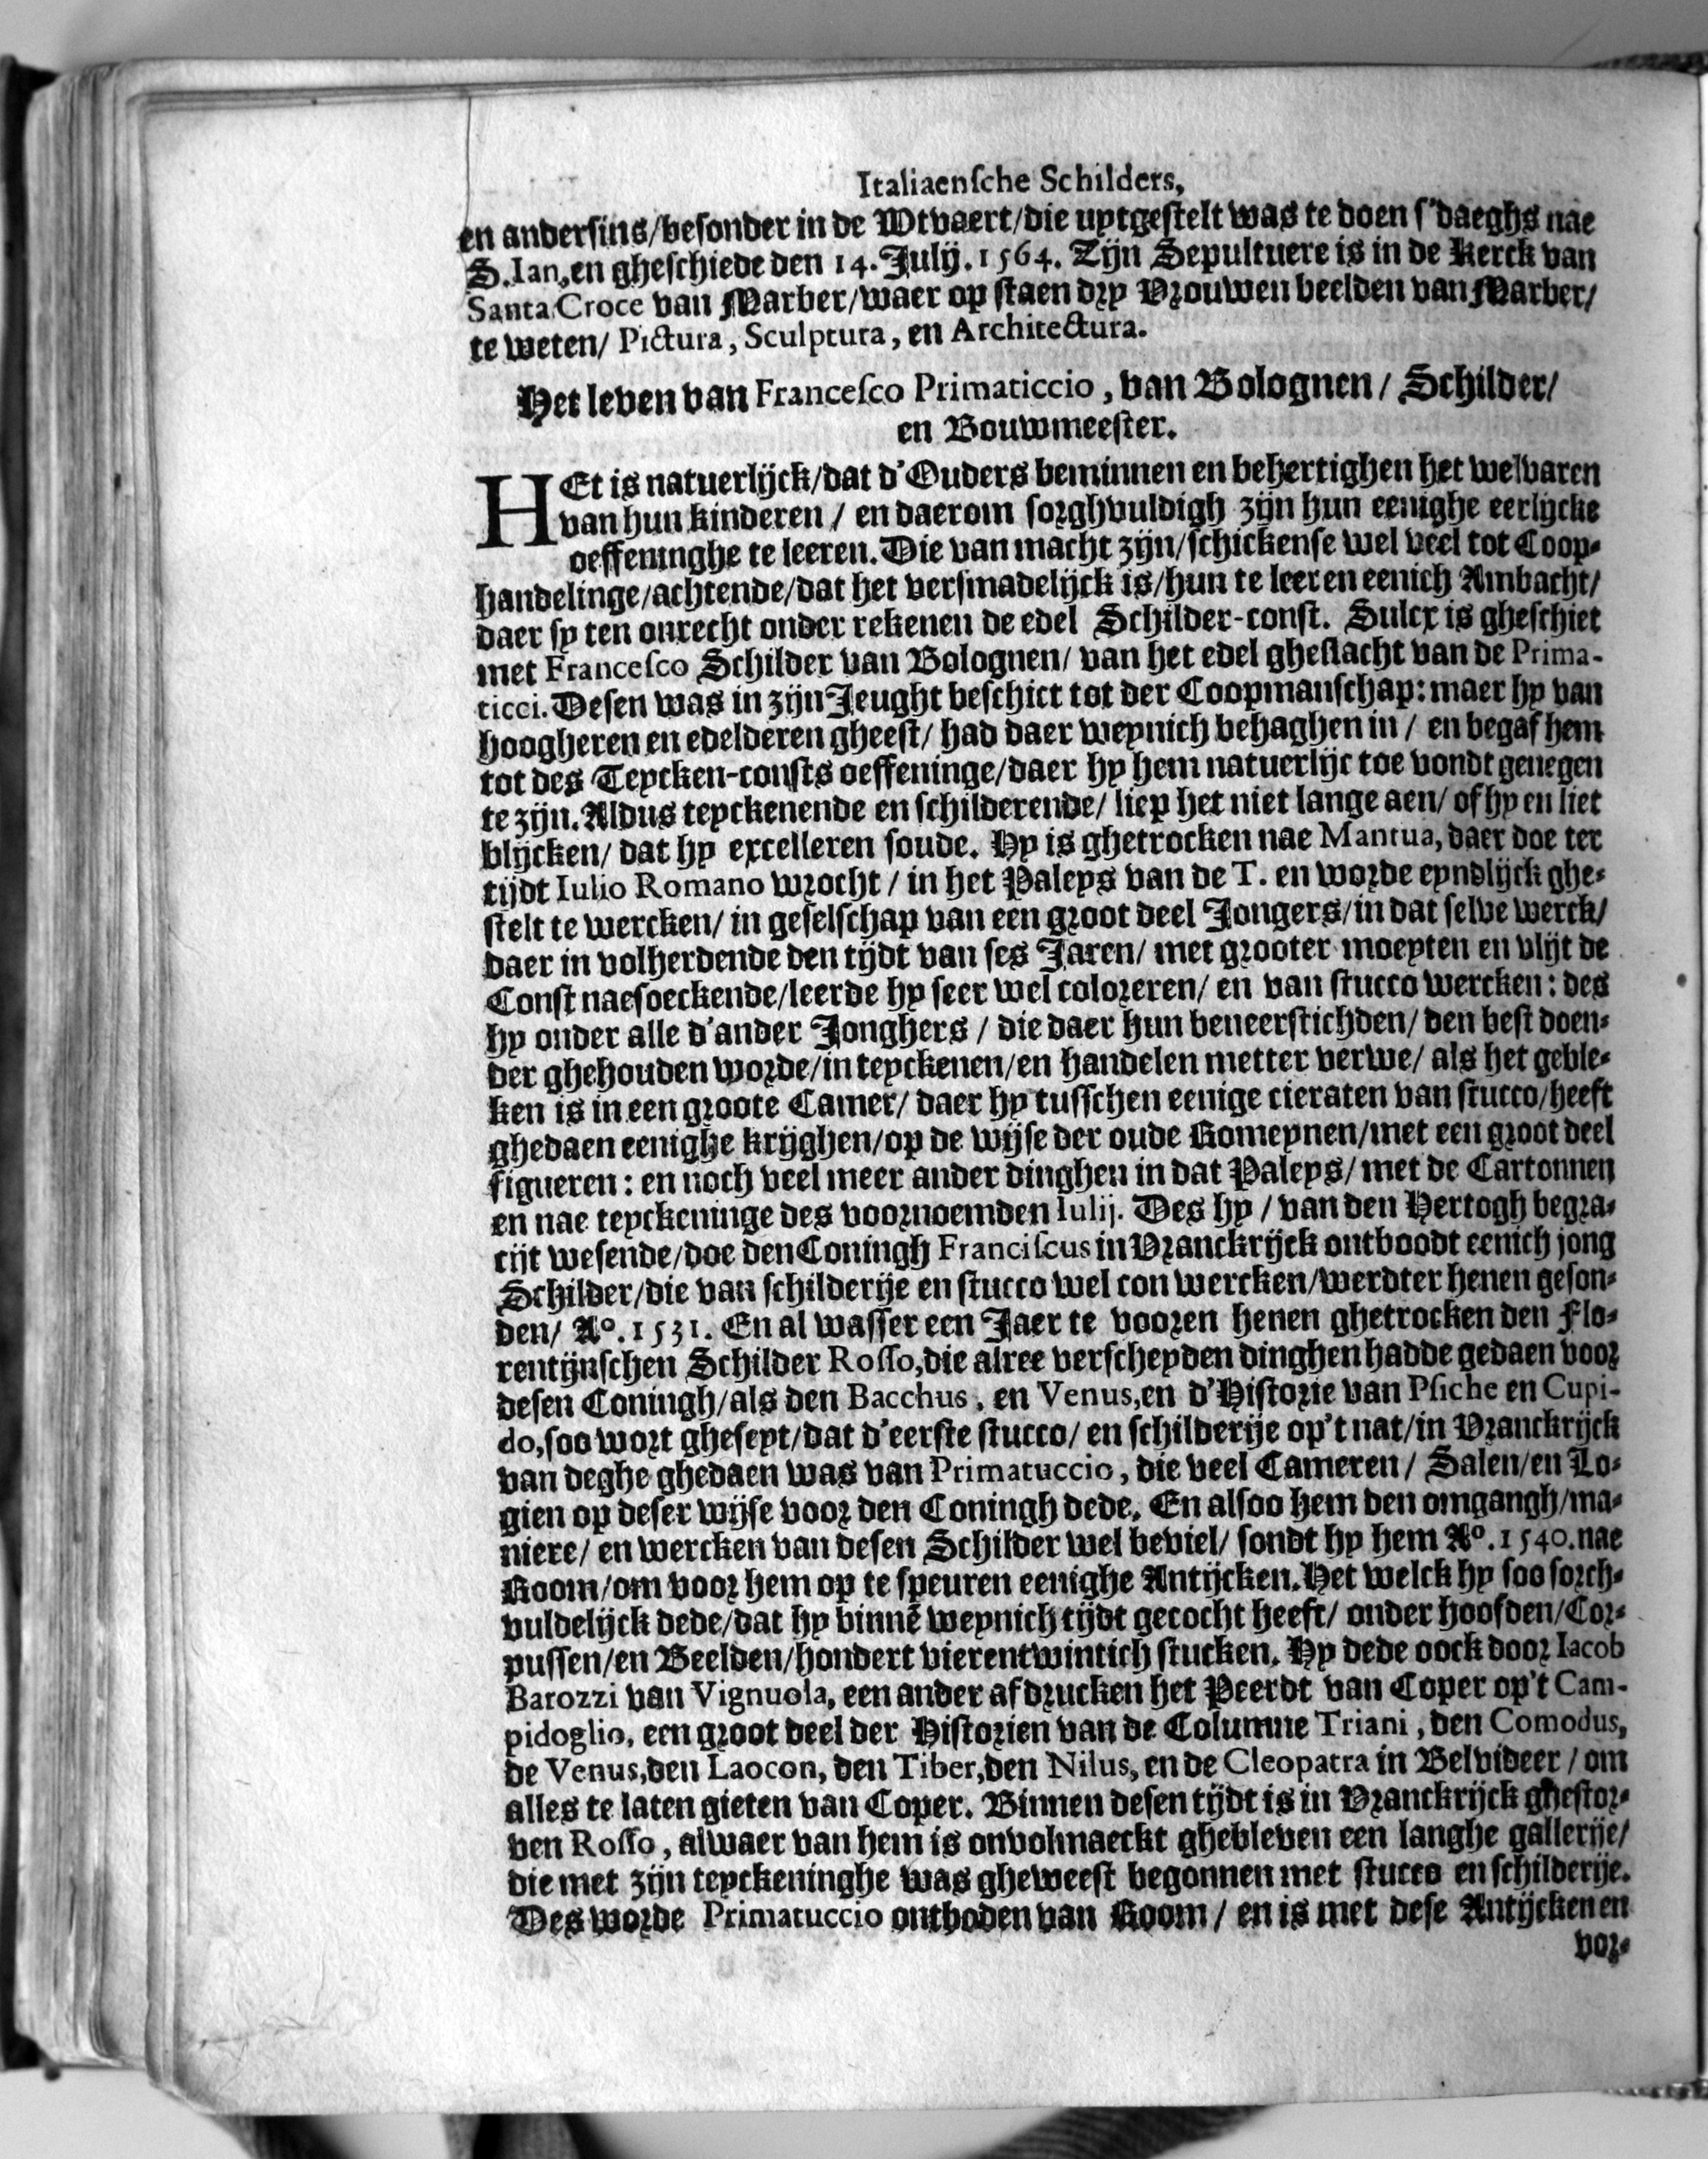 Italiaensche Schilders,
en andersins/besonder in de Wtvaert/die uytgestelt was te doen s'daeghs nae
S. Ian, en gheschiede den 14. Julij. 1564. Zijn Sepultuere is in de Kerck van
Santa Croce van Marber/waer op staen dry Vrouwen beelden van Marber/
te weten/ Pictura, Sculptura, en Architectura.
Het leven van Francesco Primaticcio, van Bolognen/ Schilder/
en Bouwmeester.
HEt is natuerlijck/dat d'Ouders beminnen en behertighen het welvaren
van hun kinderen / en daerom sorghvuldigh zijn hun eenighe eerlijcke
oeffeninghe te leeren. Die van macht zijn/schickense wel veel tot Coop-
handelinge/achtende/dat het versmadelijck is/hun te leeren eenich Ambacht/
daer sy ten onrecht onder rekenen de edel Schilder-const. Sulcx is gheschiet
met Francesco Schilder van Bolognen/ van het edel gheslacht van de Prima-
ticci. Desen was in zijn Jeught beschict tot der Coopmanschap: maer hy van
hoogheren en edelderen gheest/ had daer weynich behaghen in / en begaf hem
tot des Teycken-consts oeffeninge/daer hy hem natuerlijc toe vondt genegen
te zijn. Aldus teyckenende en schilderende/ liep het niet lange aen/ of hy en liet
blijcken/ dat hy excelleren soude. Hy is ghetrocken nae Mantua, daer doe ter
tijdt Iulio Romano wrocht / in het Paleys van de T. en worde eyndlijck ghe-
stelt te wercken/ in geselschap van een groot deel Jongers/in dat selve werck/
daer in volherdende den tijdt van ses Jaren/ met grooter moeyten en vlijt de
Const naesoeckende/leerde hy seer wel coloreren/ en van stucco wercken: des
hy onder alle d'ander Jonghers / die daer hun beneerstichden/ den best doen-
der ghehouden worde/in teyckenen/en handelen metter verwe/ als het geble-
ken is in een groote Camer/ daer hy tusschen eenige cieraten van stucco/heeft
ghedaen eenighe krijghen/op de wijse der oude Romeynen/met een groot deel
figueren: en noch veel meer ander dinghen in dat Paleys/ met de Cartonnen
en nae teyckeninge des voornoemden Iulij. Des hy / van den Hertogh begra-
tijt wesende/doe den Coningh Franciscus in Vranckrijck ontboodt eenich jong
Schilder/die van schilderije en stucco wel con wercken/werdter henen geson-
den/ A°. 1531. En al wasser een Jaer te vooren henen ghetrocken den Flo-
rentijnschen Schilder Rosso, die alree verscheyden dinghen hadde gedaen voor
desen Coningh/als den Bacchus, en Venus, en d'Historie van Psiche en Cupi-
do, soo wort gheseyt/dat d'eerste stucco/ en schilderije op't nat/in Vranckrijck
van deghe ghedaen was van Primatuccio, die veel Cameren/ Salen/en Lo-
gien op deser wijse voor den Coningh dede. En alsoo hem den omgangh/ma-
niere/ en wercken van desen Schilder wel beviel/ sondt hy hem A°. 1540. nae
Room/om voor hem op te speuren eenighe Antijcken. Het welck hy soo sorch-
vuldelijck dede/dat hy binnē weynich tijdt gecocht heeft/ onder hoofden/Cor-
pussen/en Beelden/hondert vierentwintich stucken. Hy dede oock door Iacob
Barozzi van Vignuola, een ander afdrucken het Peerdt van Coper op't Cam-
pidoglio, een groot deel der Historien van de Columne Triani, den Comodus,
de Venus, den Laocon, den Tiber, den Nilus, en de Cleopatra in Belvideer / om
alles te laten gieten van Coper. Binnen desen tijdt is in Vranckrijck ghestor-
ven Rosso, alwaer van hem is onvolmaeckt ghebleven een langhe gallerije/
die met zijn teyckeninghe was gheweest begonnen met stucco en schilderije.
Des worde Primatuccio onthoden van Room / en is met dese Antijcken en
vor-